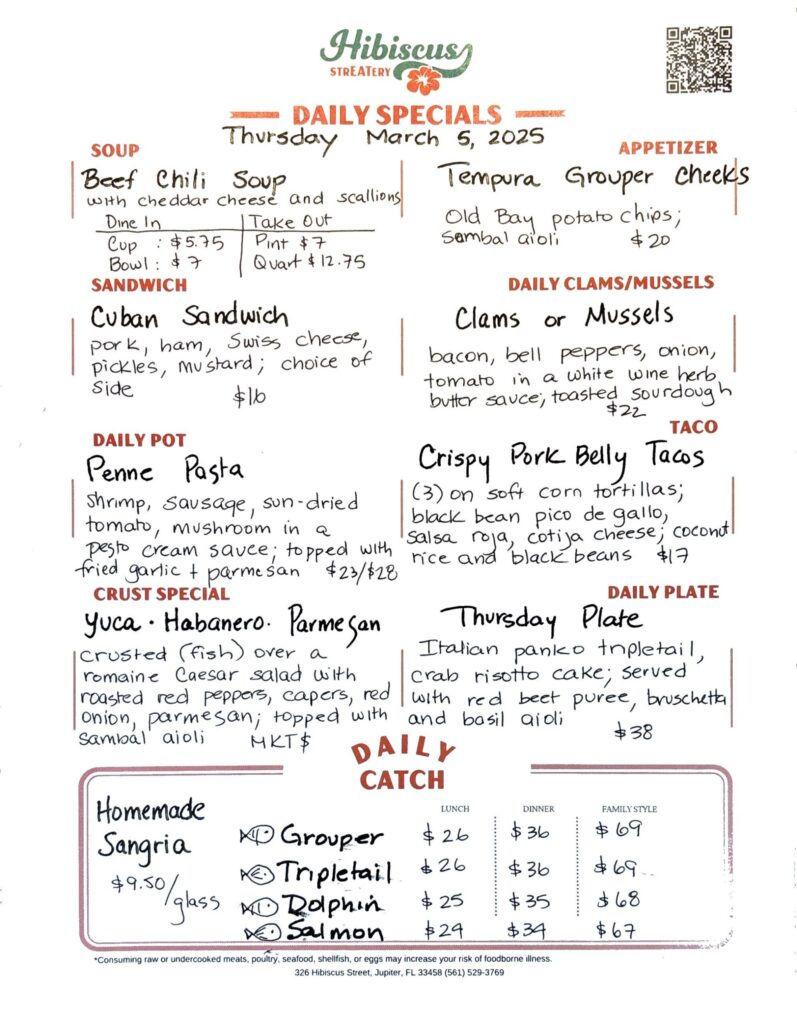 Hibiscus
STREATERY
DAILY SPECIALS
Thursday March 5, 2025
SOUP
Beef Chili Soup
with cheddar cheese and scallions
Dine In | Take Out
Cup : $5.75 | Pint $7
Bowl : $7 | Quart $12.75
APPETIZER
Tempura Grouper Cheeks
Old Bay potato chips;
sambal aioli $20
SANDWICH
Cuban Sandwich
pork, ham, Swiss cheese,
pickles, mustard; choice of
side $16
DAILY CLAMS/MUSSELS
Clams or Mussels
bacon, bell peppers, onion,
tomato in a white wine herb
butter sauce; toasted sourdough
$22
DAILY POT
Penne Pasta
shrimp, sausage, sun-dried
tomato, mushroom in a
pesto cream sauce; topped with
fried garlic + parmesan $23/$28
TACO
Crispy Pork Belly Tacos
(3) on soft corn tortillas;
black bean pico de gallo,
salsa roja, cotija cheese; coconut
rice and black beans $17
CRUST SPECIAL
Yuca · Habanero · Parmesan
crusted (fish) over a
romaine Caesar salad with
roasted red peppers, capers, red
onion, parmesan; topped with
sambal aioli MKT$
DAILY PLATE
Thursday Plate
Italian panko tripletail,
crab risotto cake; served
with red beet puree, bruschetta
and basil aioli
$38
DAILY
CATCH
Homemade
Sangria
$9.50/glass
LUNCH DINNER FAMILY STYLE
Grouper $26 $36 $69
Tripletail $26 $36 $69
Dolphin $25 $35 $68
Salmon $24 $34 $67
*Consuming raw or undercooked meats, poultry, seafood, shellfish, or eggs may increase your risk of foodborne illness.
326 Hibiscus Street, Jupiter, FL 33458 (561) 529-3769